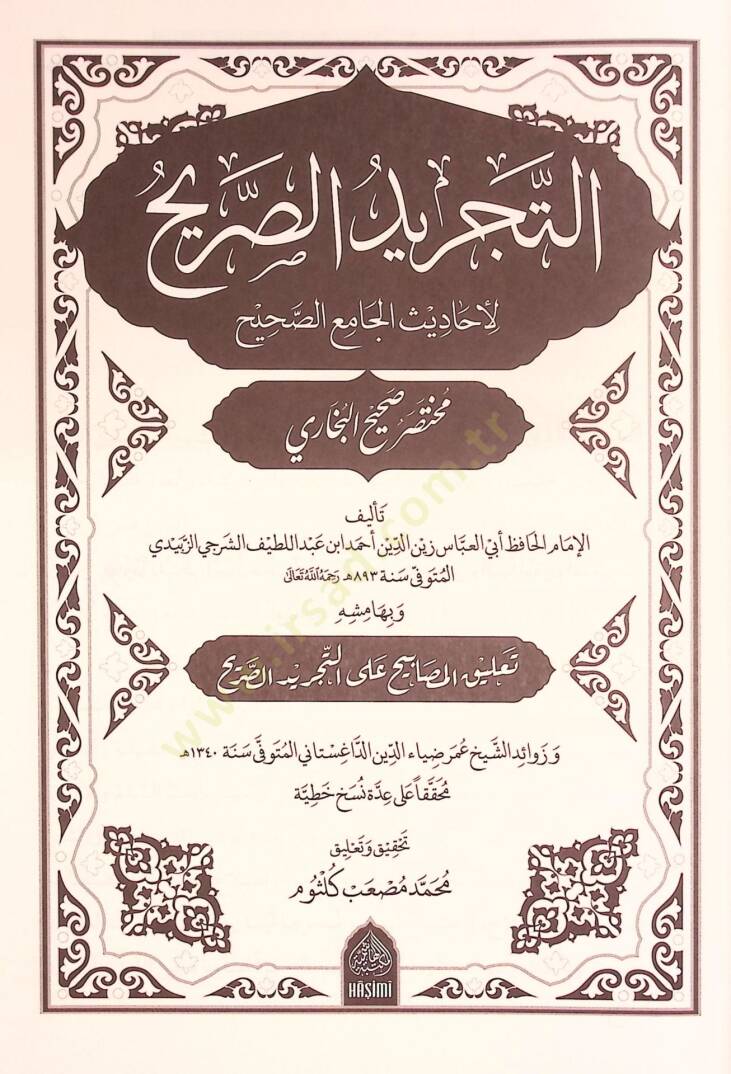 التَّجريدُ الصَّريحُ
لِأحَاديْث الجَامِع الصَّحِيْح
مُختَصَر صَحِيْح البُخَاري
تَأليف
الإمَام الحَافِظ أبي العبَّاس زين الدِّين أحمَد ابن عَبْد اللطيف الشرجي الزَّبيدي
المُتَوفّى سَنَة ٨٩٣هـ رَحِمَهُ اللَّهُ تَعَالَىٰ
وَبِهَامِشِهِ
تَعليق المصابيح عَلى التَّجريد الصَّريح
وَزوائد الشَّيخ عُمَر ضِيَاء الدِّين الدَّاغِستاني المُتَوفَّى سَنَة ١٣٤٠هـ
مُحَقَّقاً عَلى عِدَّة نُسَخ خَطِيَّة
تَحقِيق وَتَعْليق
مُحَمَّد مُصْعَب كُلْثُوم
HÂŞİMÎ
www.irsad.com.tr